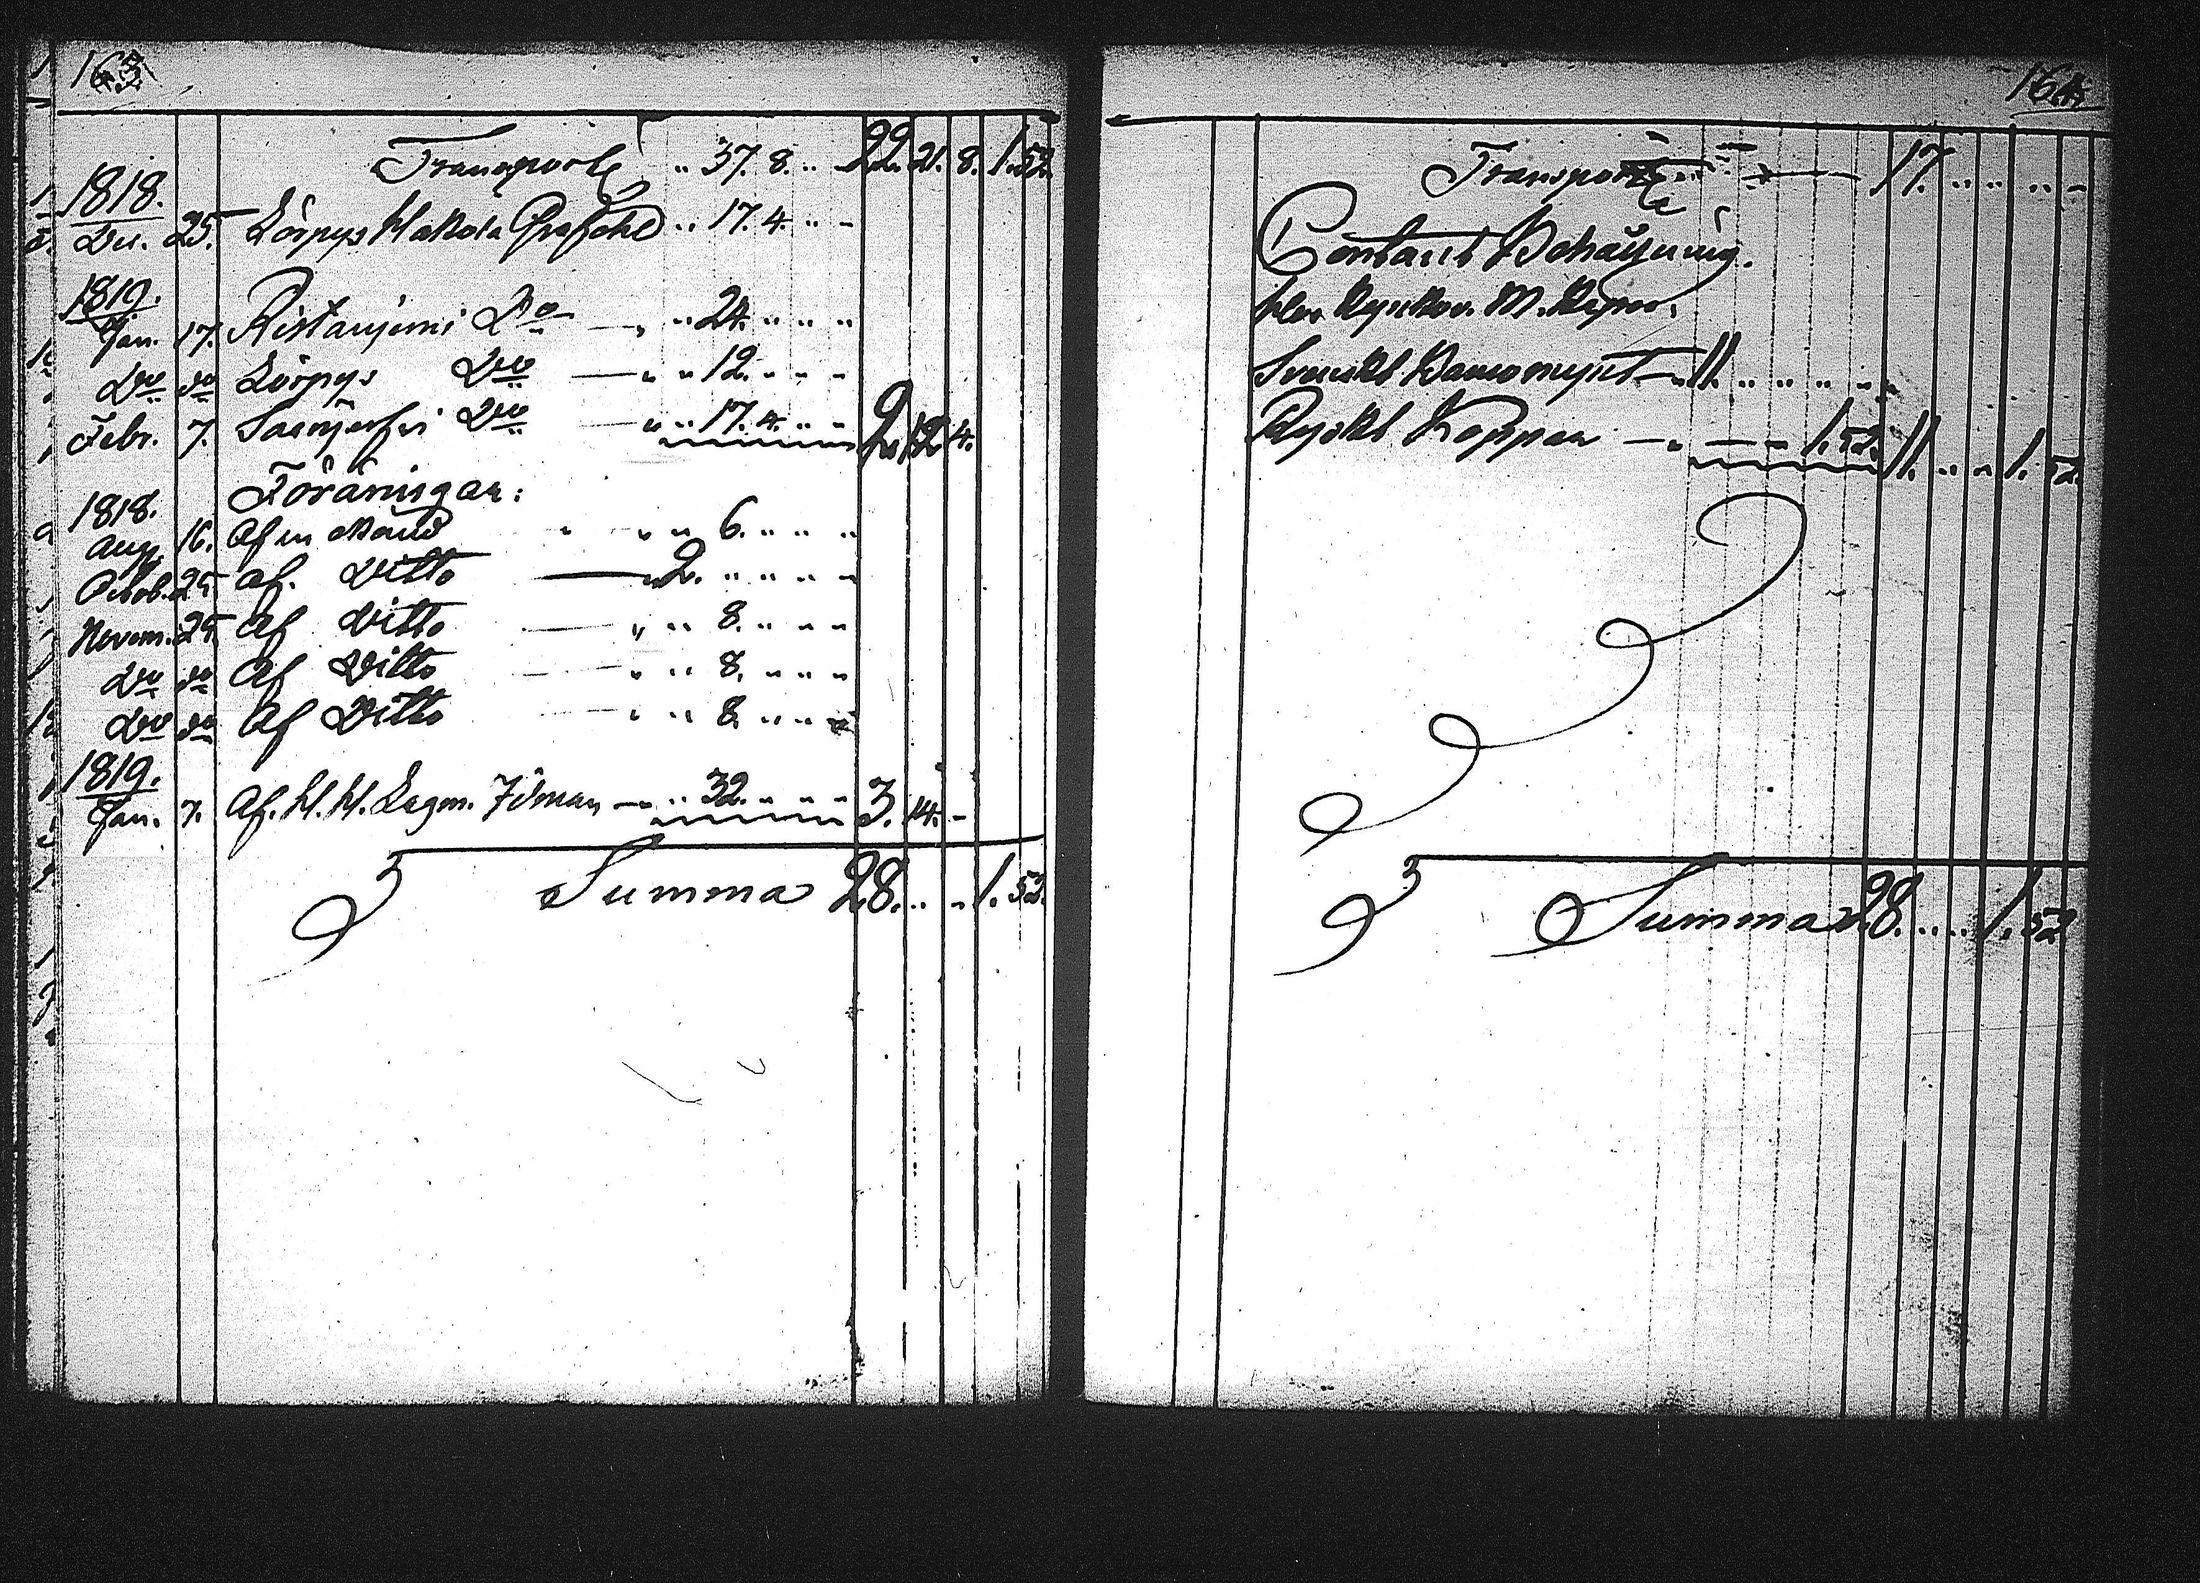 163.
Transporte " 37. 8. " 22. 21. 8. 1. 52.
1818.
Dec. 25. Lörpys Hakola " 17. 4. " "
1819.
Jan. 17. Ristanjemi Do — " " 24. " " "
Do do Lörpys Do — " " 12. " " "
Febr. 7. Do — " " 17. 4. " " 2. 12. 4.
Föräringar:
1818.
Aug. 16. Af en " " " 6. " " "
Octob. 25. af. Ditto — " 2. " " " "
Novem. 25. Af Ditto — " " 8. " " "
Do do Af Ditto — " " 8. " " "
Do do Af Ditto — " " 8. " " "
1819.
Jan. 7. Af. H. H. Lagm. — " " 32. " " " 3. 14. "
Summa 28. " " 1. 52.
164.
Transporte — 17. " " " "
Contant Behållning.
Svenskt Bancomynt — " 11. " " " " "
Ryskt Koppar — " — " 1. 52. 11. " " 1. 52.
Summa 28. " " 1. 52